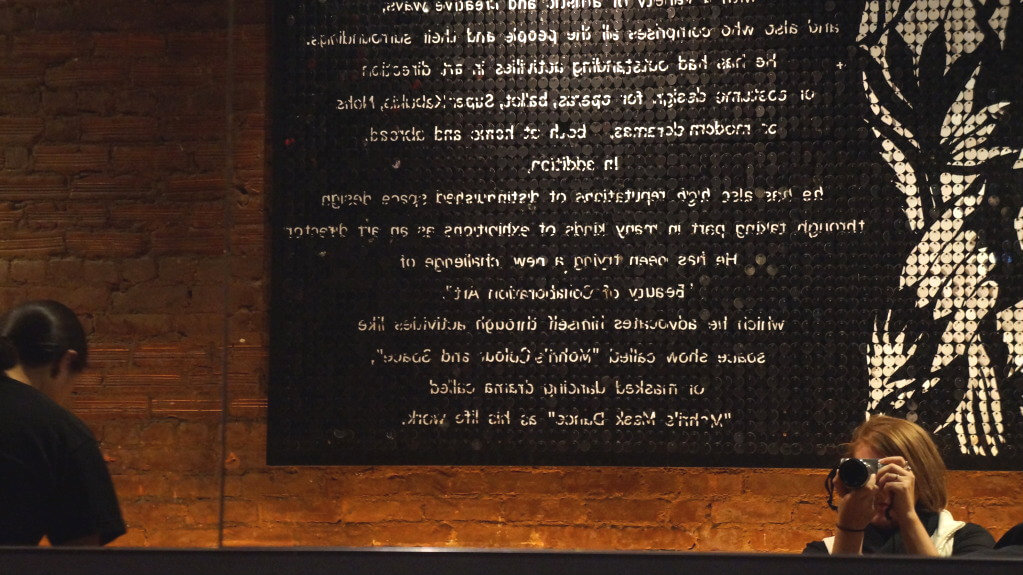 with a variety of artistic and creative ways,
and also who comprises all the people and their surroundings.
he has had outstanding activities in art direction
or costume design, for operas, ballet, Super Kabukis, Nohs
or modern doramas, both at home and abroad.
In addition,
he has also high reputations of distinguished space design
through taking part in many kinds of exhibitions as an art director
He has been trying a new challenge of
"Beauty of Collaboration Art".
which he advocates himself through activities like
space show called "Mohri's Colour and Space",
or masked dancing drama called
"Mohri's Mask Dance" as his life work.